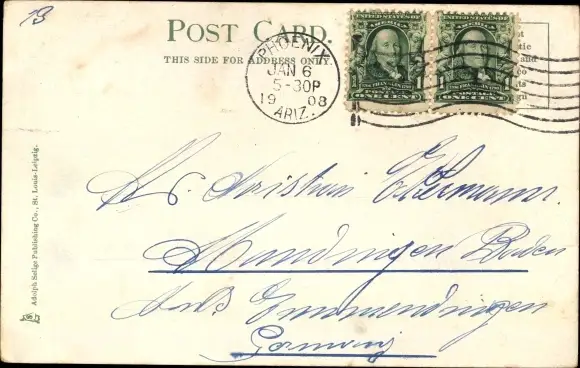 13
POST CARD.
THIS SIDE FOR ADDRESS ONLY.
PHOENIX
JAN 6
5-30P
1908
ARIZ.
UNITED STATES OF AMERICA
1 POSTAGE 1
ONE CENT
UNITED STATES OF AMERICA
1 POSTAGE 1
ONE CENT
and
Adolph Selige Publishing Co., St. Louis-Leipzig.
Christian
Mundingen Baden
Emmendingen
Germany